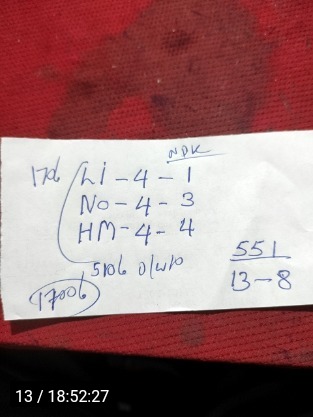 NDK
170b
Li - 4 - 1
No - 4 - 3
HM - 4 - 4
510b 0/w/o
1700b
551
13 - 8
13 / 18:52:27